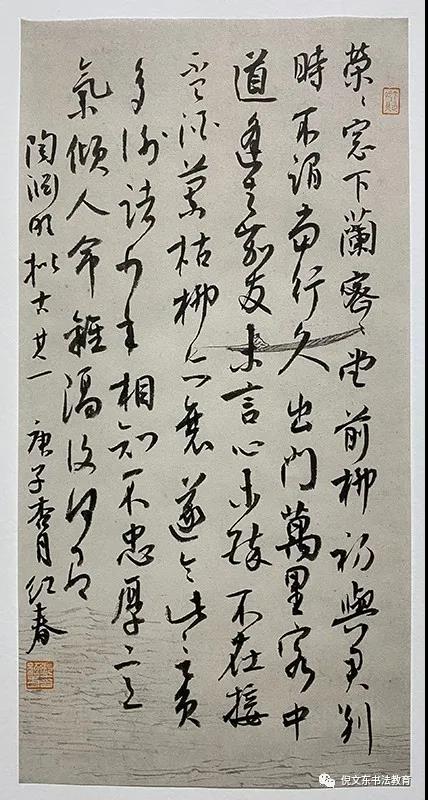 榮〻窓下蘭密〻堂前柳初與君別
時不謂當行久出門萬里客中
道逢嘉友未言心醉不在接
盃酒蘭枯柳亦衰遂令此言負
多謝諸少年相知不忠厚意
氣傾人命離隔復何有
陶淵明擬古其一 庚子杏月红春
倪文东书法教育